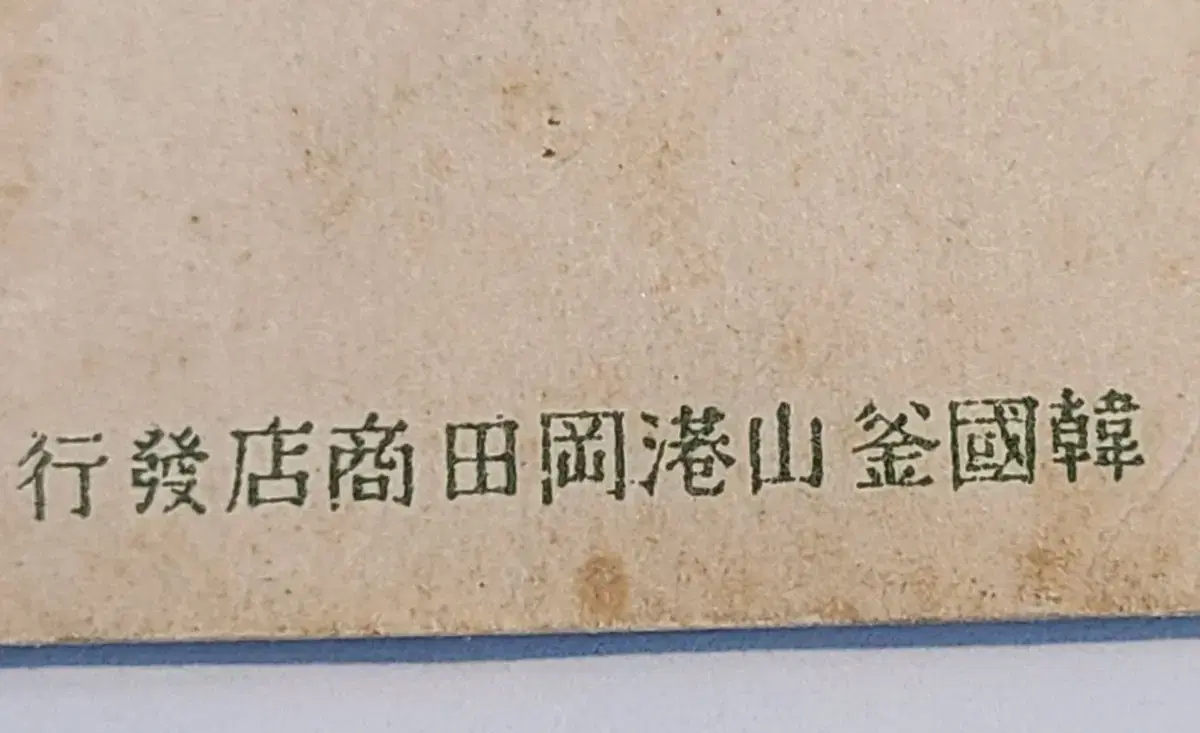 韓國釜山港岡田商店發行